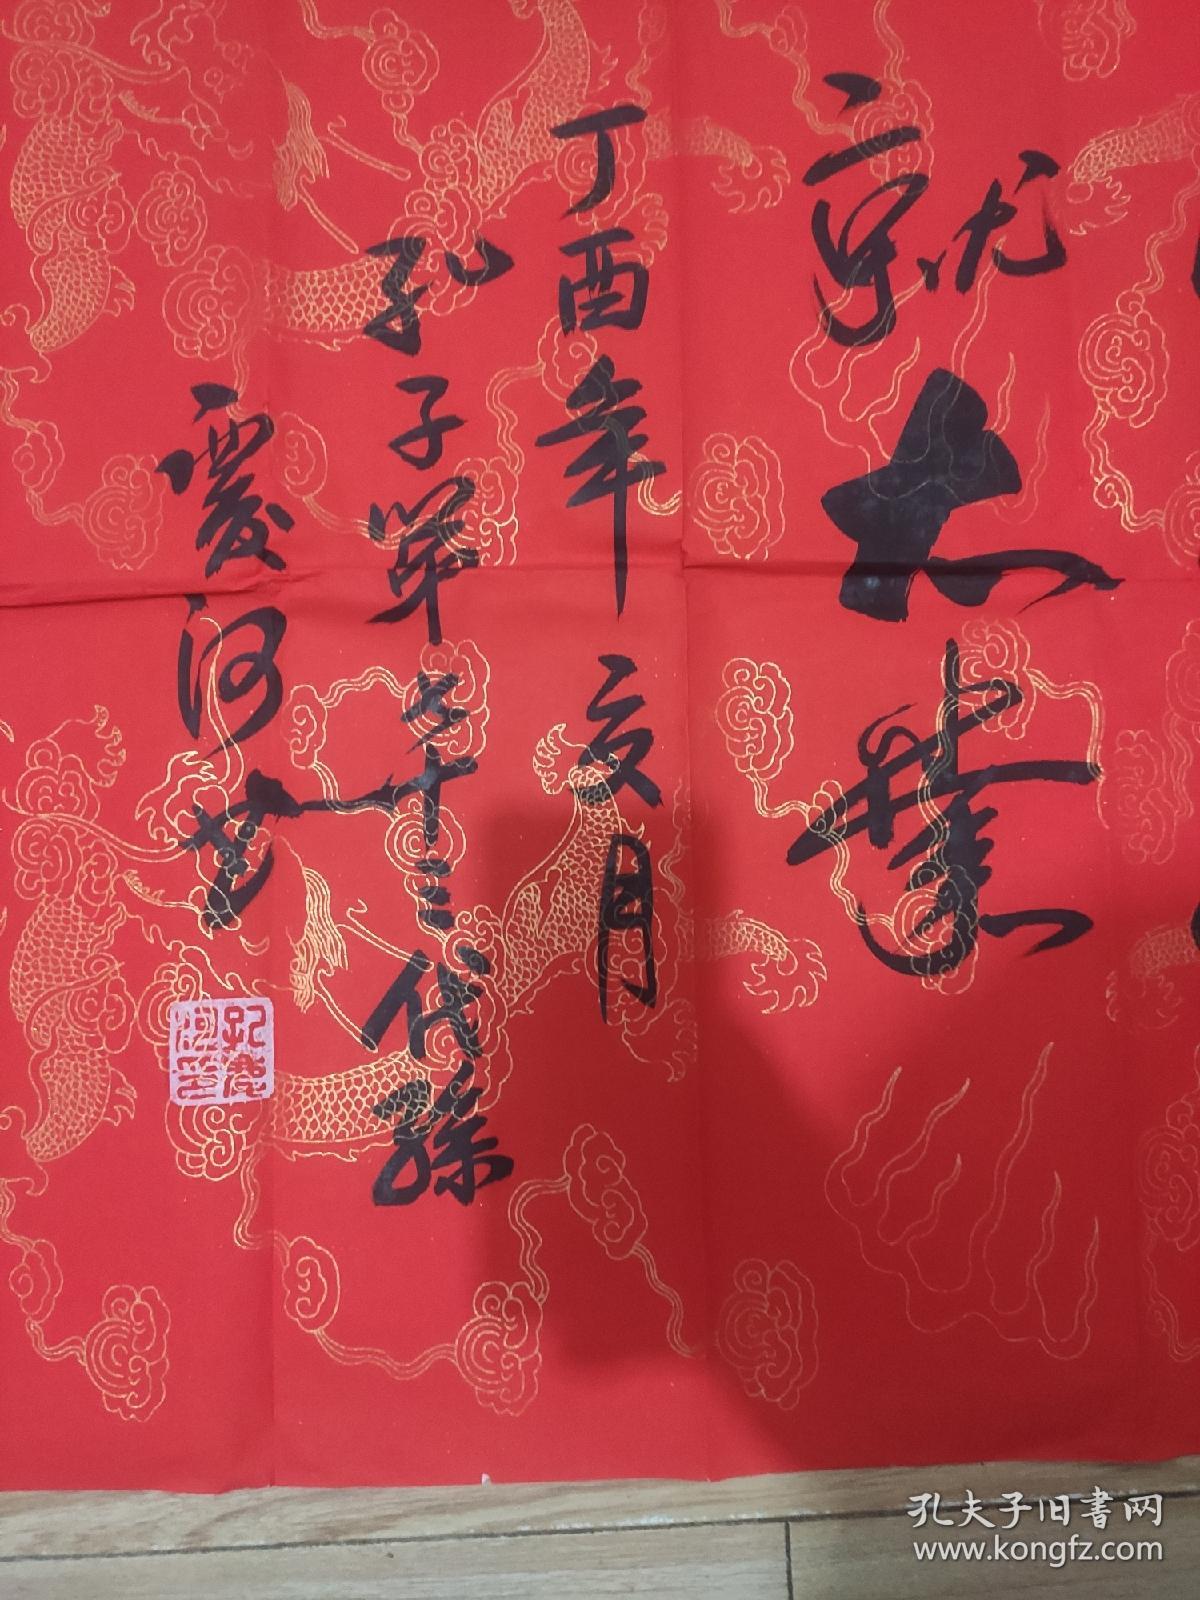 就大業
丁酉年亥月
孔子第七十三代孫
慶河书
孔慶河印
孔夫子旧書网
www.kongfz.com